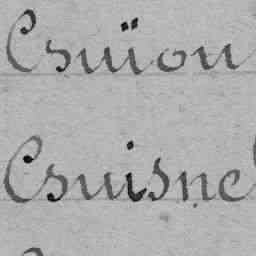 Csuïon
Csuisne